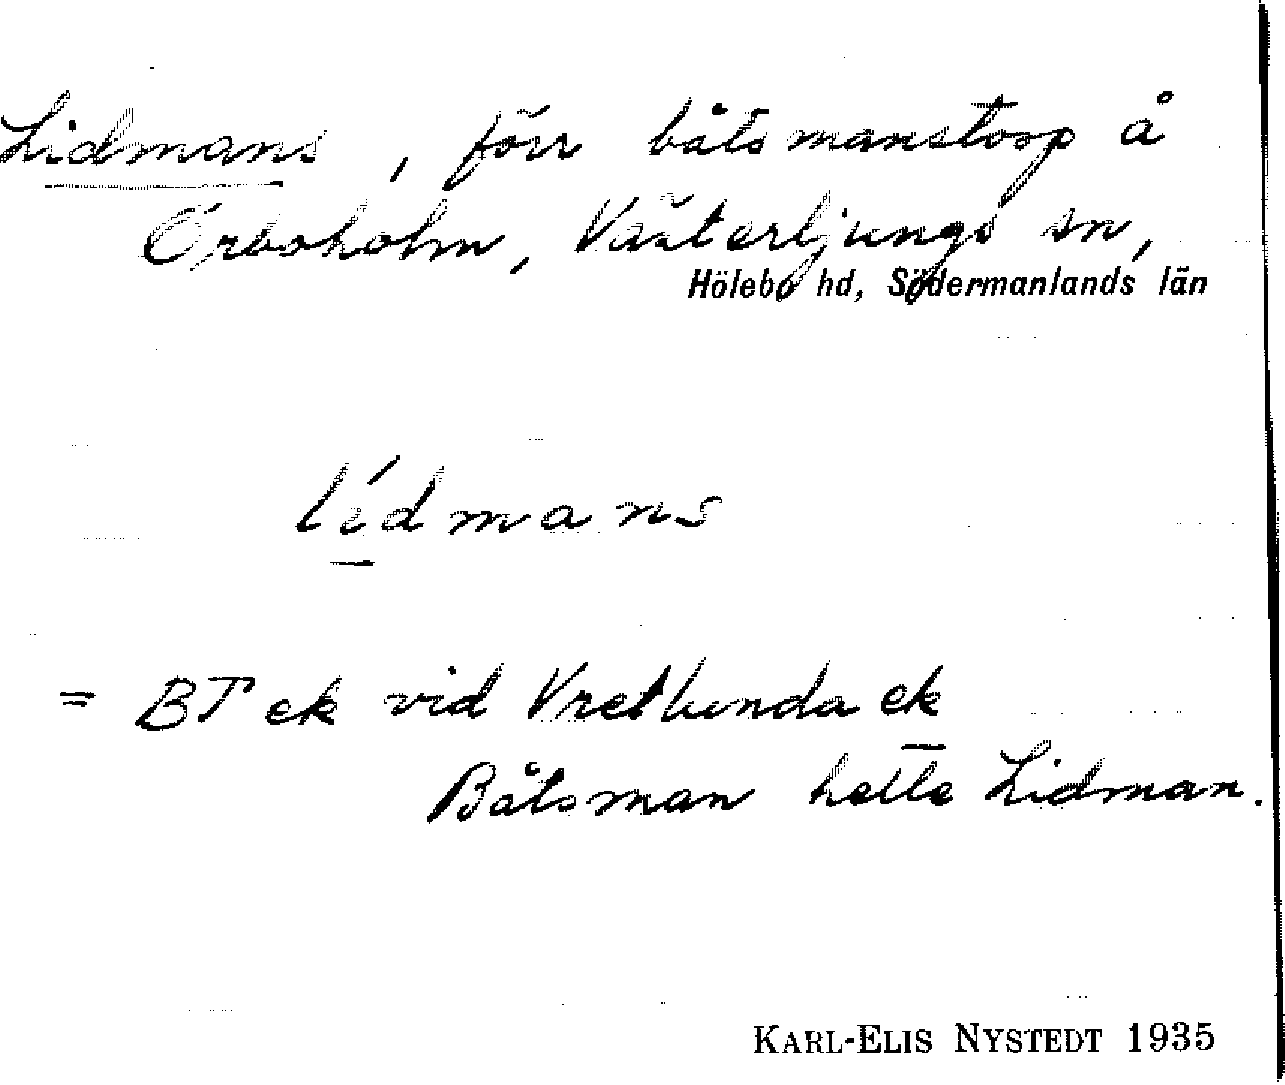 Lidmans, förr båtsmanstorp å
Örboholm, Västerljungs sn,
Hölebo hd, Södermanlands län
lídmans
= BT ek vid Vretlunda ek
Båtsman hette Lidman.
KARL-ELIS NYSTEDT 1935